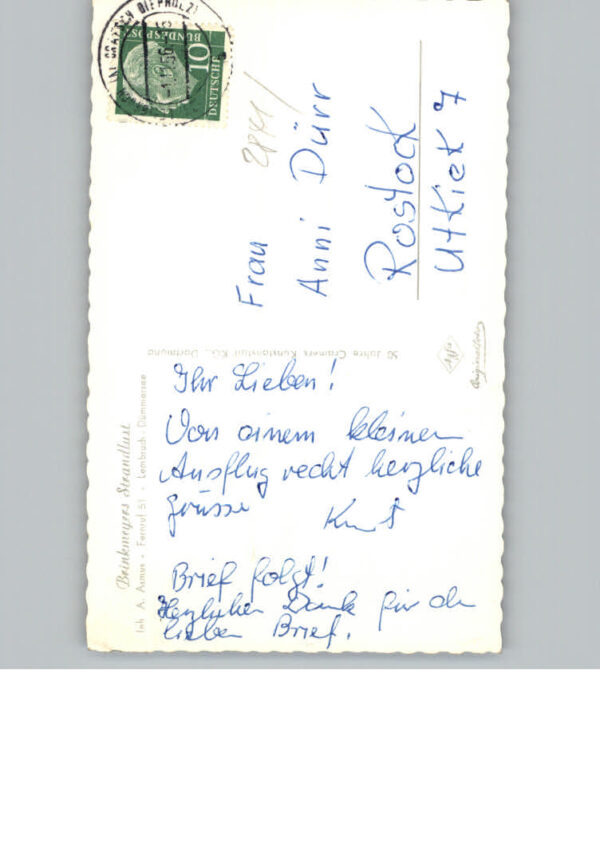 Ihr Lieben!
Von einem kleinen
Ausflug recht herzliche
Grüsse Kurt
Brief folgt!
Herzlichen Dank für den
lieben Brief.
Frau
Anni Dürr
Rostock
Utkiek 7
Brinkmeyers Strandlust
Inh. A. Asmus • Fernruf 51 • Lembruch - Dümmersee
50 Jahre Cramers Kunstanstalt KG., Dortmund
Agfa
Originalfoto
DEUTSCHE
BUNDESPOST
10